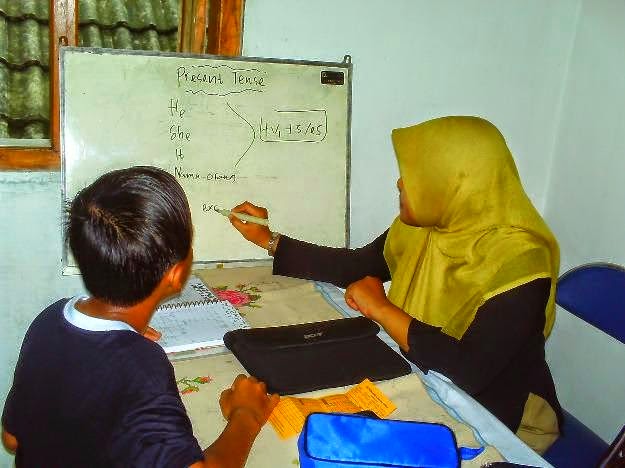 Present Tense
He
She
It
Nama orang
+ V1 + s/es
exa